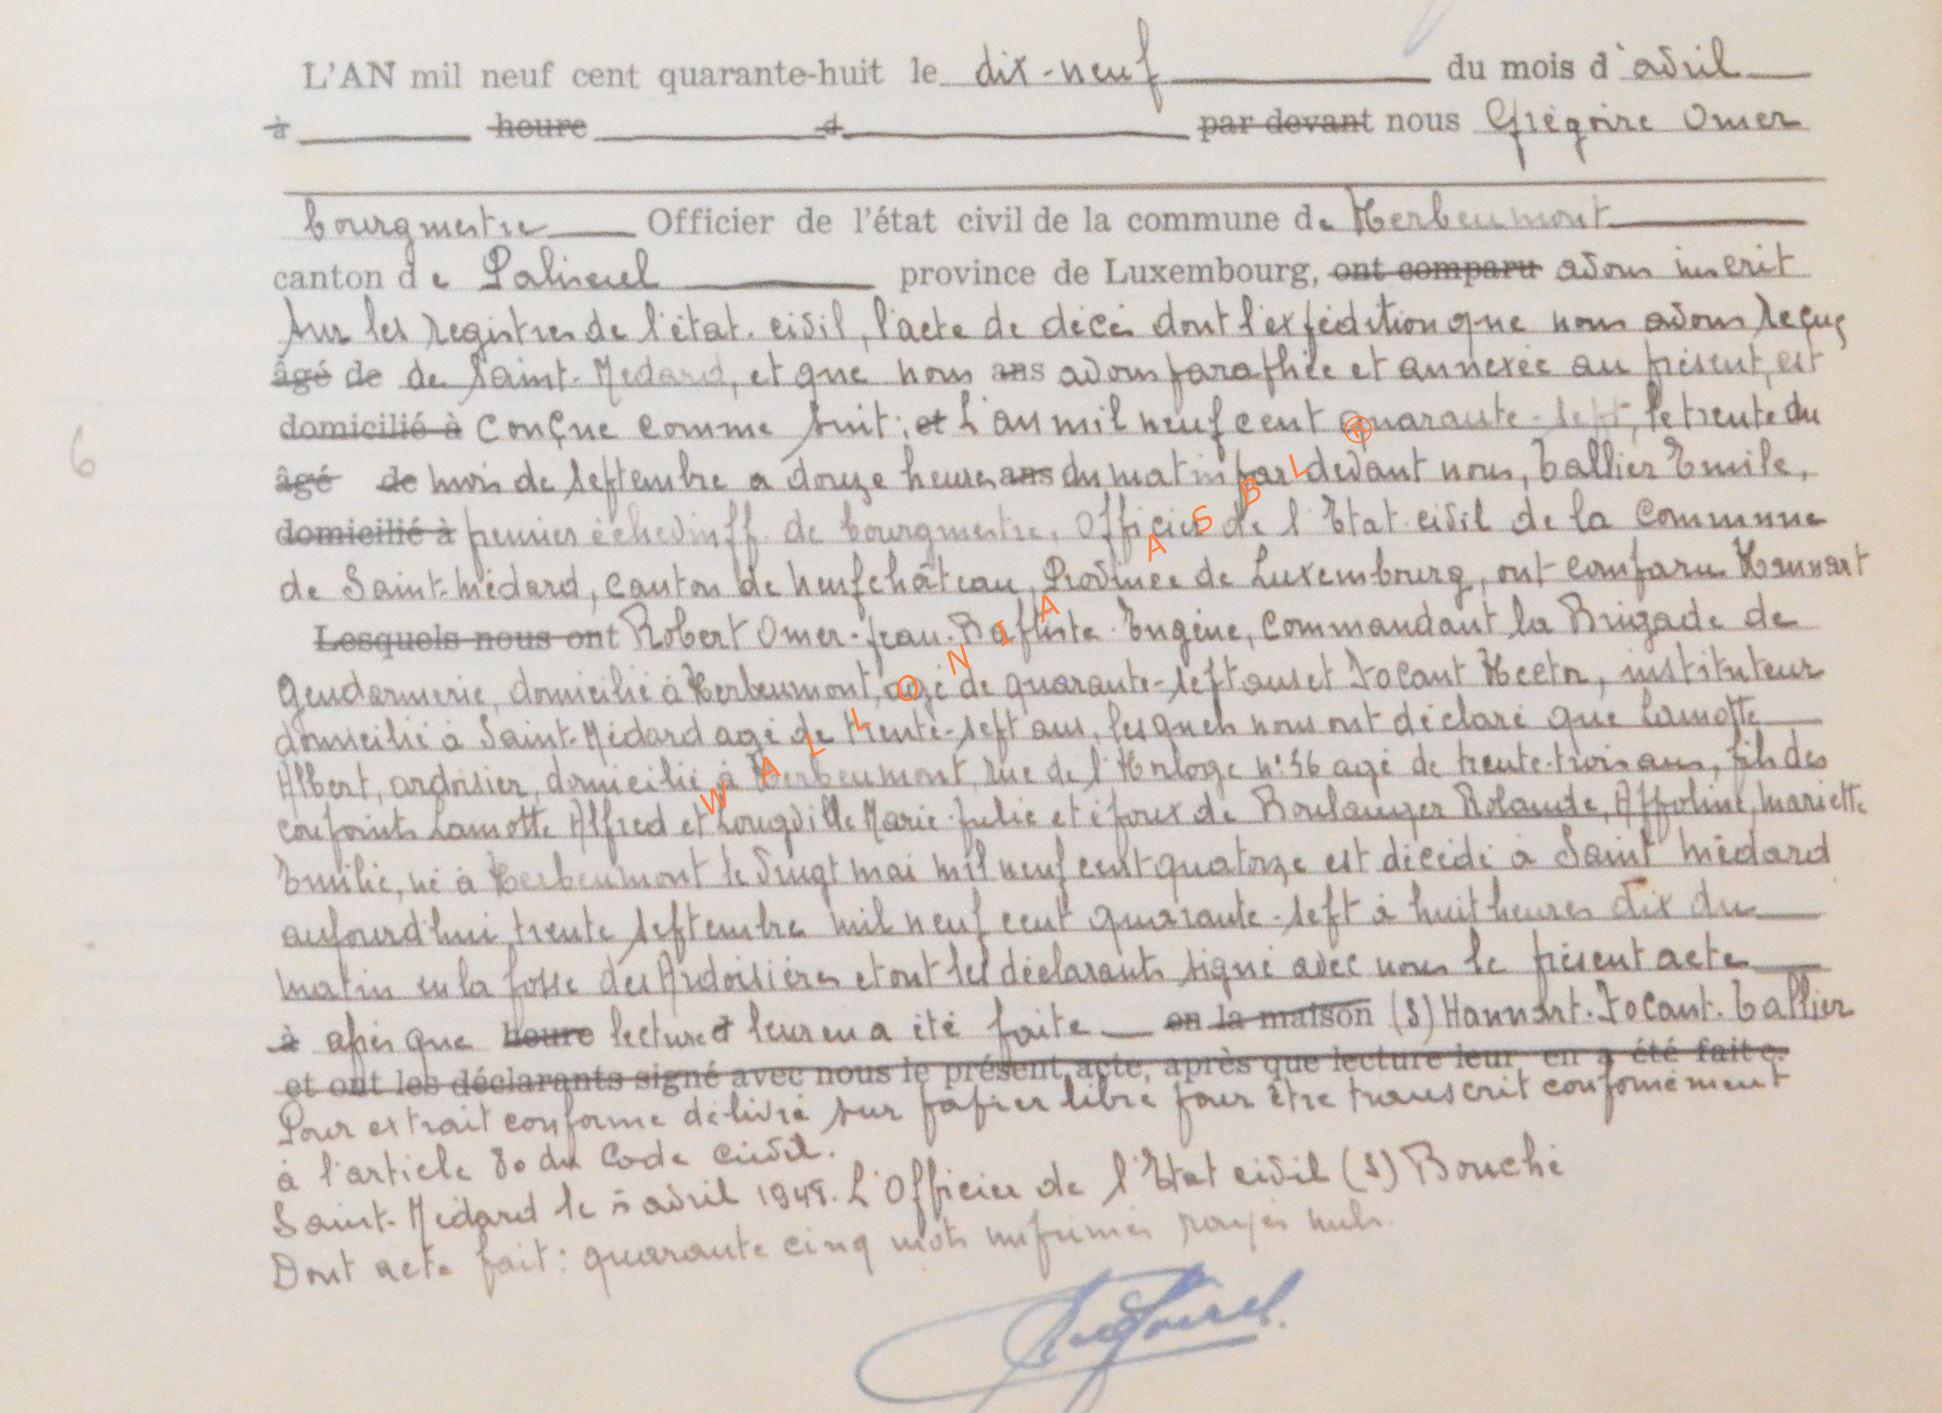 L'AN mil neuf cent quarante-huit le dix-neuf du mois d'avril
à heure d par devant nous Grégoire Omer
bourgmestre Officier de l'état civil de la commune de Herbeumont
canton de Paliseul province de Luxembourg, ont comparu avons inscrit
sur les registres de l'état-civil, l'acte de décès dont l'expédition que nous avons reçue
âgé de de Saint-Médard, et que nous ans avons paraphée et annexée au présent, est
domicilié à conçue comme suit: et L'an mil neuf cent quarante-sept, le trente du
âgé de mois de septembre a douze heures ans du matin par devant nous, Tallier Emile,
domicilié à premier échevin ff de bourgmestre, Officier de l'Etat-civil de la Commune
de Saint-Médard, Canton de Neufchâteau, Province de Luxembourg, ont comparu Hannart
Lesquels nous ont Robert Omer-Jean-Baptiste-Eugène, Commandant la Brigade de
Gendarmerie, domicilié à Herbeumont, agé de quarante-sept ans et Focant Hector, instituteur
domicilié à Saint-Médard agé de trente-sept ans, lesquels nous ont déclaré que Lamotte
Albert, ardoisier, domicilié à Herbeumont, rue de l'Horloge n°36 agé de trente-trois ans, fils des
conjoints Lamotte Alfred et Longville Marie-Julie et époux de Boulanger Rolande, Appoline, Mariette
Emilie, né à Herbeumont le vingt mai mil neuf cent quatorze est décédé à Saint Médard
aujourd'hui trente septembre mil neuf cent quarante-sept à huit heures dix du
matin en la fosse des Ardoisières et ont les déclarants signé avec nous le présent acte
à après que heure lecture d leur en a été faite en la maison (S) Hannart. Focant. Tallier
et ont les déclarants signé avec nous le présent acte, après que lecture leur en a été faite.
Pour extrait conforme délivré sur papier libre pour être transcrit conformément
à l'article 80 du Code civil.
Saint-Médard le 5 avril 1948. L'Officier de l'Etat civil (S) Bouché
Dont acte fait: quarante cinq mots imprimés rayés nuls.
6
WALLONIA ASBL ®